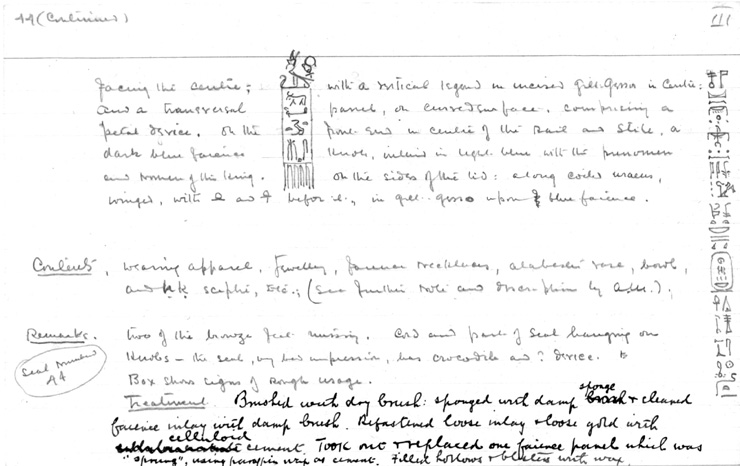 44 (Continued)
III
facing the centre; with a vertical legend in incised gilt-gesso in centre:
and a transversal panel, on curved surface, comprising a
petal device. On the front end in centre of the rail and stile, a
dark blue faience knob, inlaid in light blue with the prenomen
and nomen of the king. On the sides of the lid: a long coiled uraeus,
winged, with and before it, in gilt-gesso upon blue faience.
Contents, wearing apparel, jewellery, faience necklaces, alabaster vase, bowls,
and sceptre, etc.; (See further Note and description by A.M.);
Remarks. two of the bronze feet missing. Cord and part of seal hanging on
knobs – the seal, bad impression, has crocodile and ? device.
Seal number
A4
Box shows signs of rough usage.
Treatment Brushed with dry brush: sponged with damp sponge & cleaned
faience inlay with damp brush. Refastened loose inlay & loose gold with
celluloid cement. Took out & replaced one faience panel which was
"sprung", using paraffin wax as cement. Filled hollows & blisters with wax